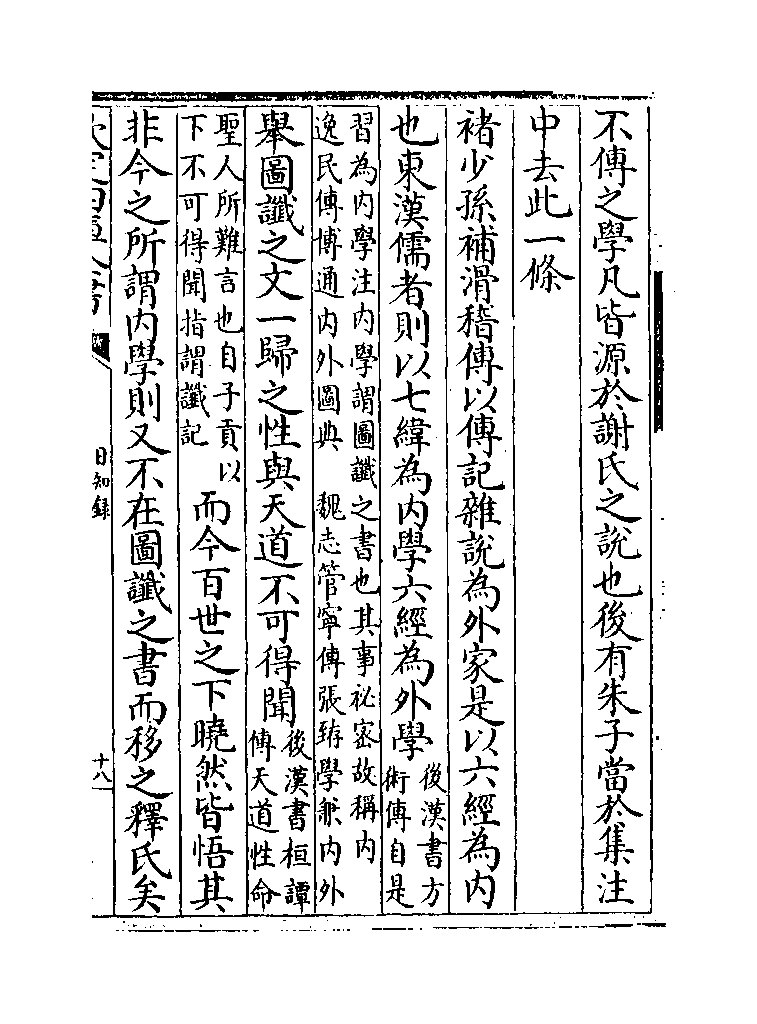 不傳之學凡皆源於謝氏之説也後有朱子當於集注
中去此一條
褚少孫補滑稽傳以傳記雜説為外家是以六經為内
也東漢儒者則以七緯為内學六經為外學
後漢書方
術傳自是
習為内學注内學謂圖讖之書也其事祕密故稱内
逸民傳博通内外圖典 魏志管寧傳張臶學兼内外
舉圖讖之文一歸之性與天道不可得聞
後漢書桓譚
傳天道性命
聖人所難言也自子貢以
下不可得聞指謂讖記
而今百世之下曉然皆悟其
非今之所謂内學則又不在圖讖之書而移之釋氏矣
日知録
十八